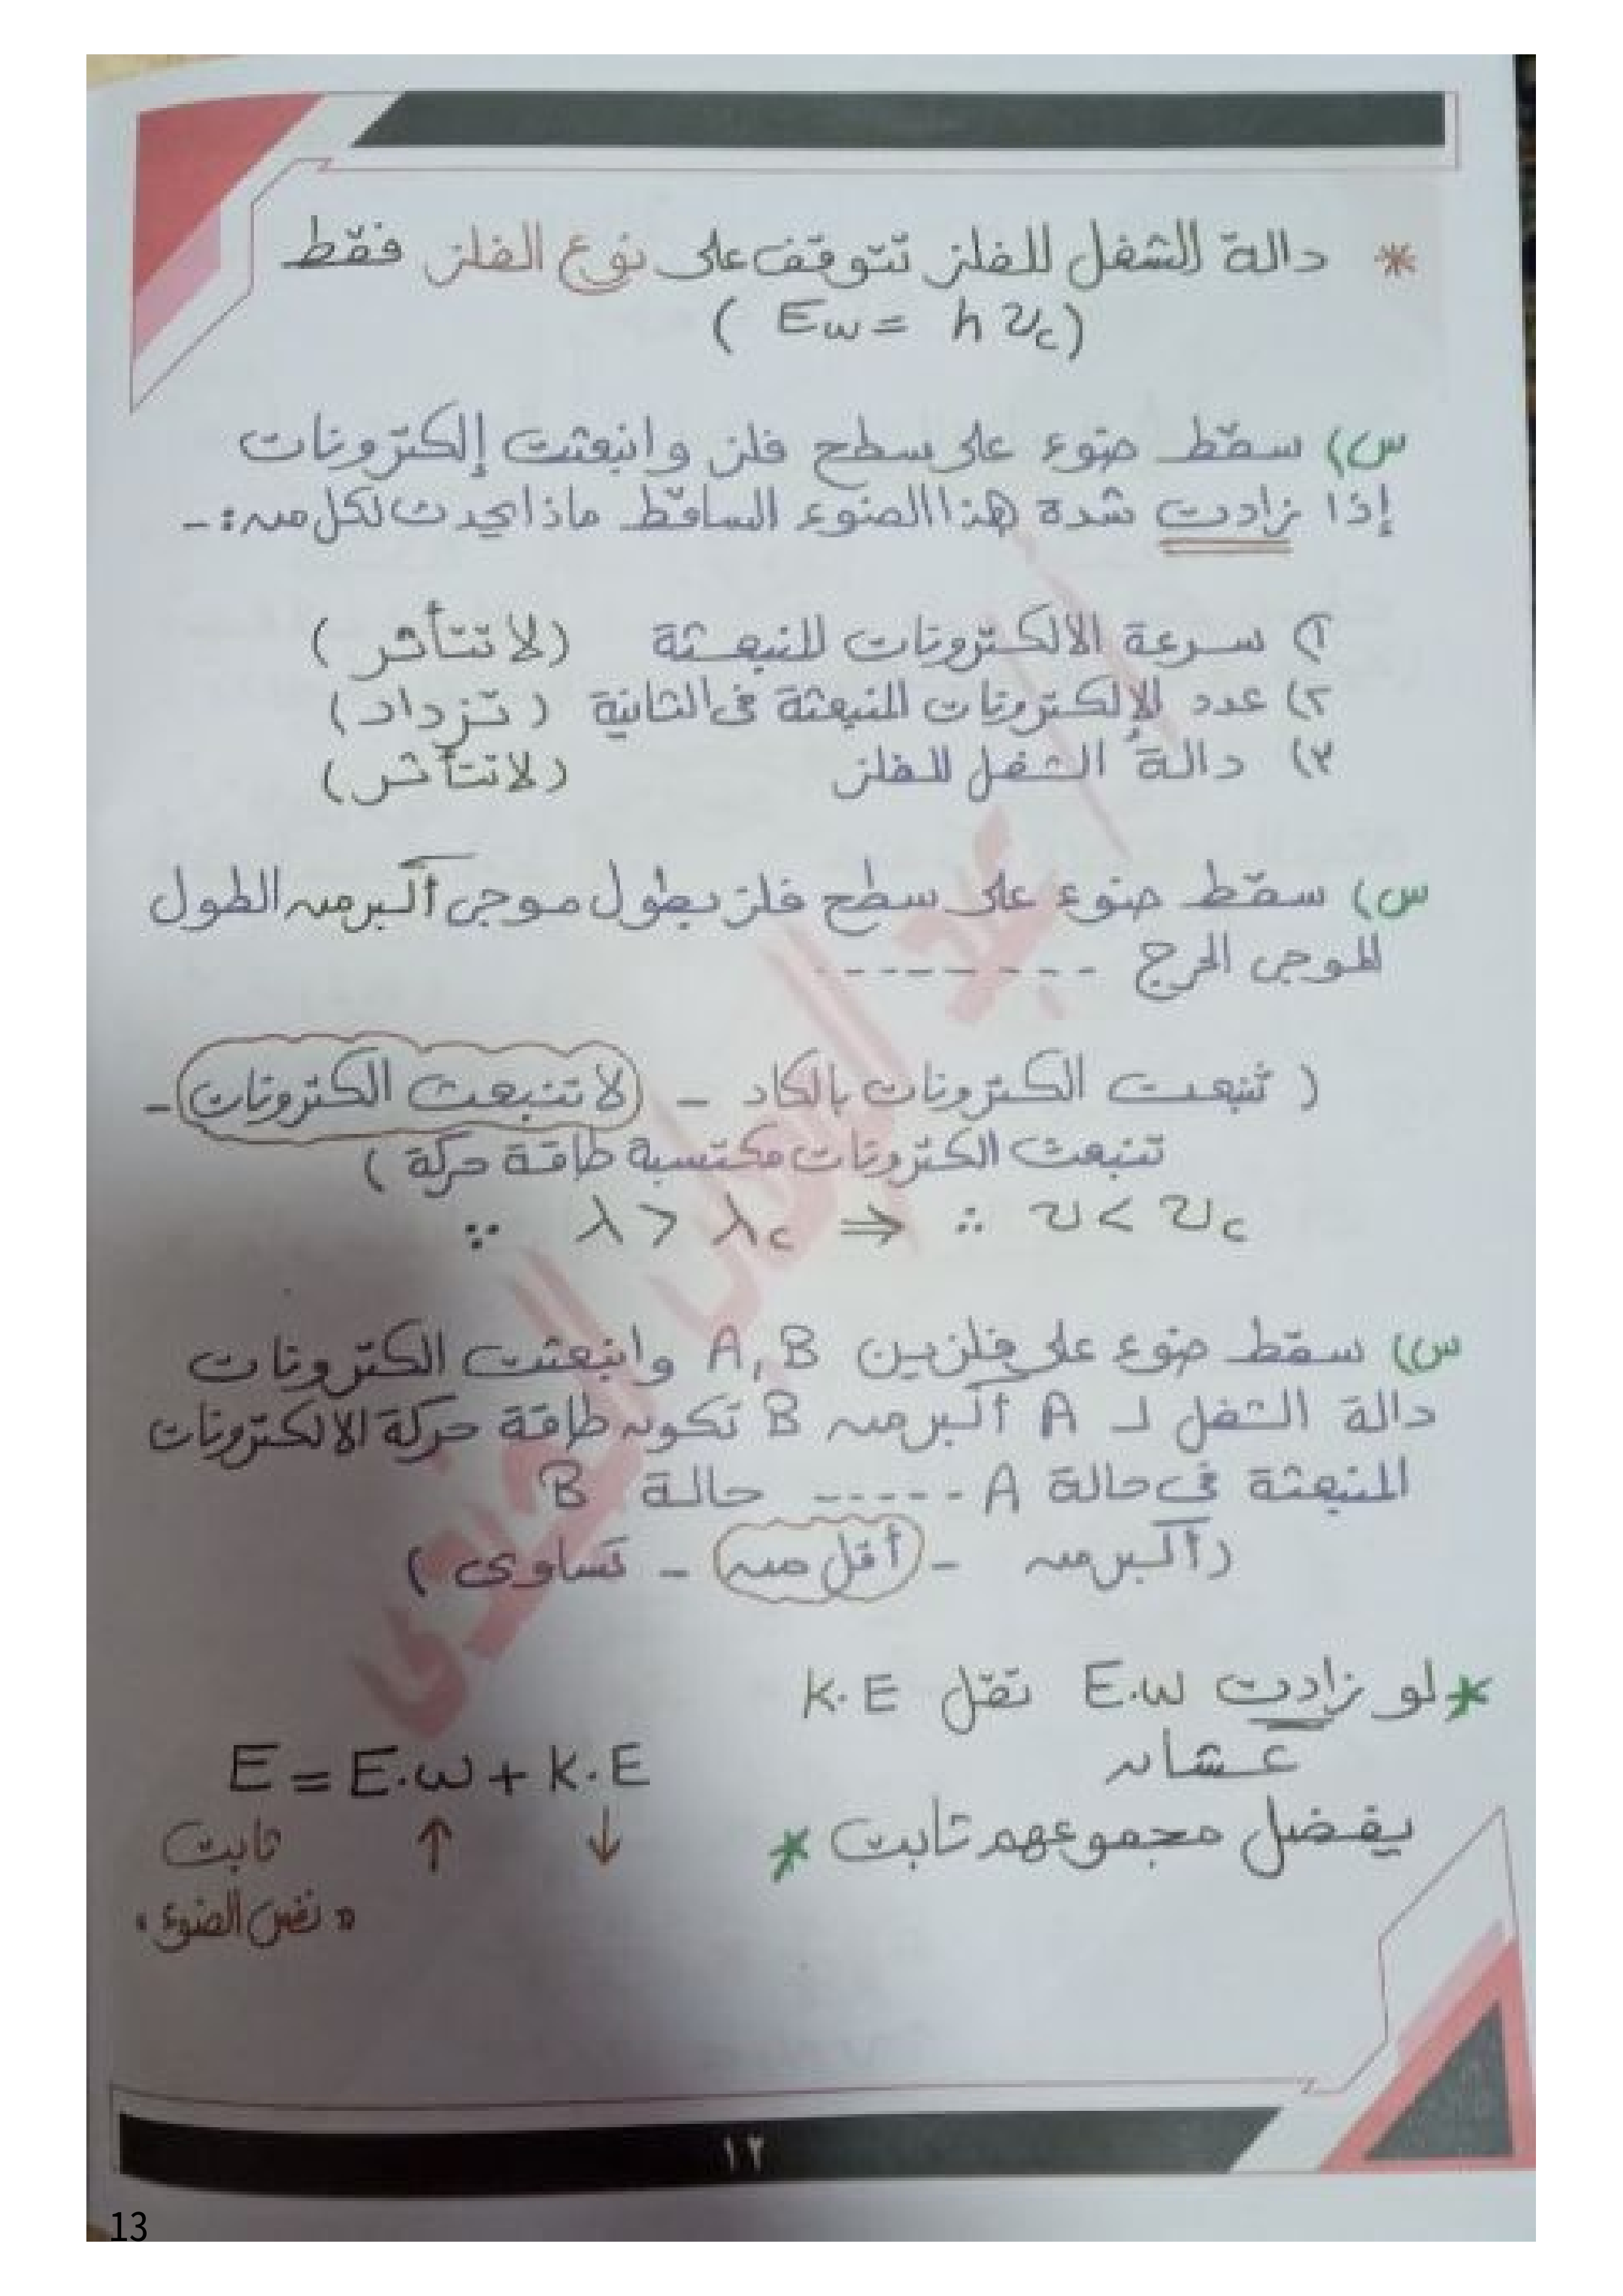 * دالة الشغل للفلز تتوقف على نوع الفلز فقط
( Ew = h υc )
س) سقط ضوء على سطح فلز وانبعثت إلكترونات
إذا زادت شدة هذا الضوء الساقط ماذا يحدث لكل من :-
١) سرعة الالكترونات المنبعثة (لا تتأثر)
٢) عدد الإلكترونات المنبعثة فى الثانية (تزداد)
٣) دالة الشغل للفلز (لا تتأثر)
س) سقط ضوء على سطح فلز بطول موجى أكبر من الطول
الموجى الحرج ---------
( تنبعث الكترونات بالكاد - لا تنبعث الكترونات -
تنبعث الكترونات مكتسبة طاقة حركة )
∵ λ > λc ⇒ ∴ υ < υc
س) سقط ضوء على فلزين A, B وانبعثت الكترونات
دالة الشغل لـ A أكبر من B تكون طاقة حركة الالكترونات
المنبعثة فى حالة A ----- حالة B
(أكبر من - أقل من - تساوى )
* لو زادت E.w تقل K.E
عشان
يفضل مجموعهم ثابت *
E = E.w + K.E
ثابت ↑ ↓
" نفس الضوء "
١٢
13